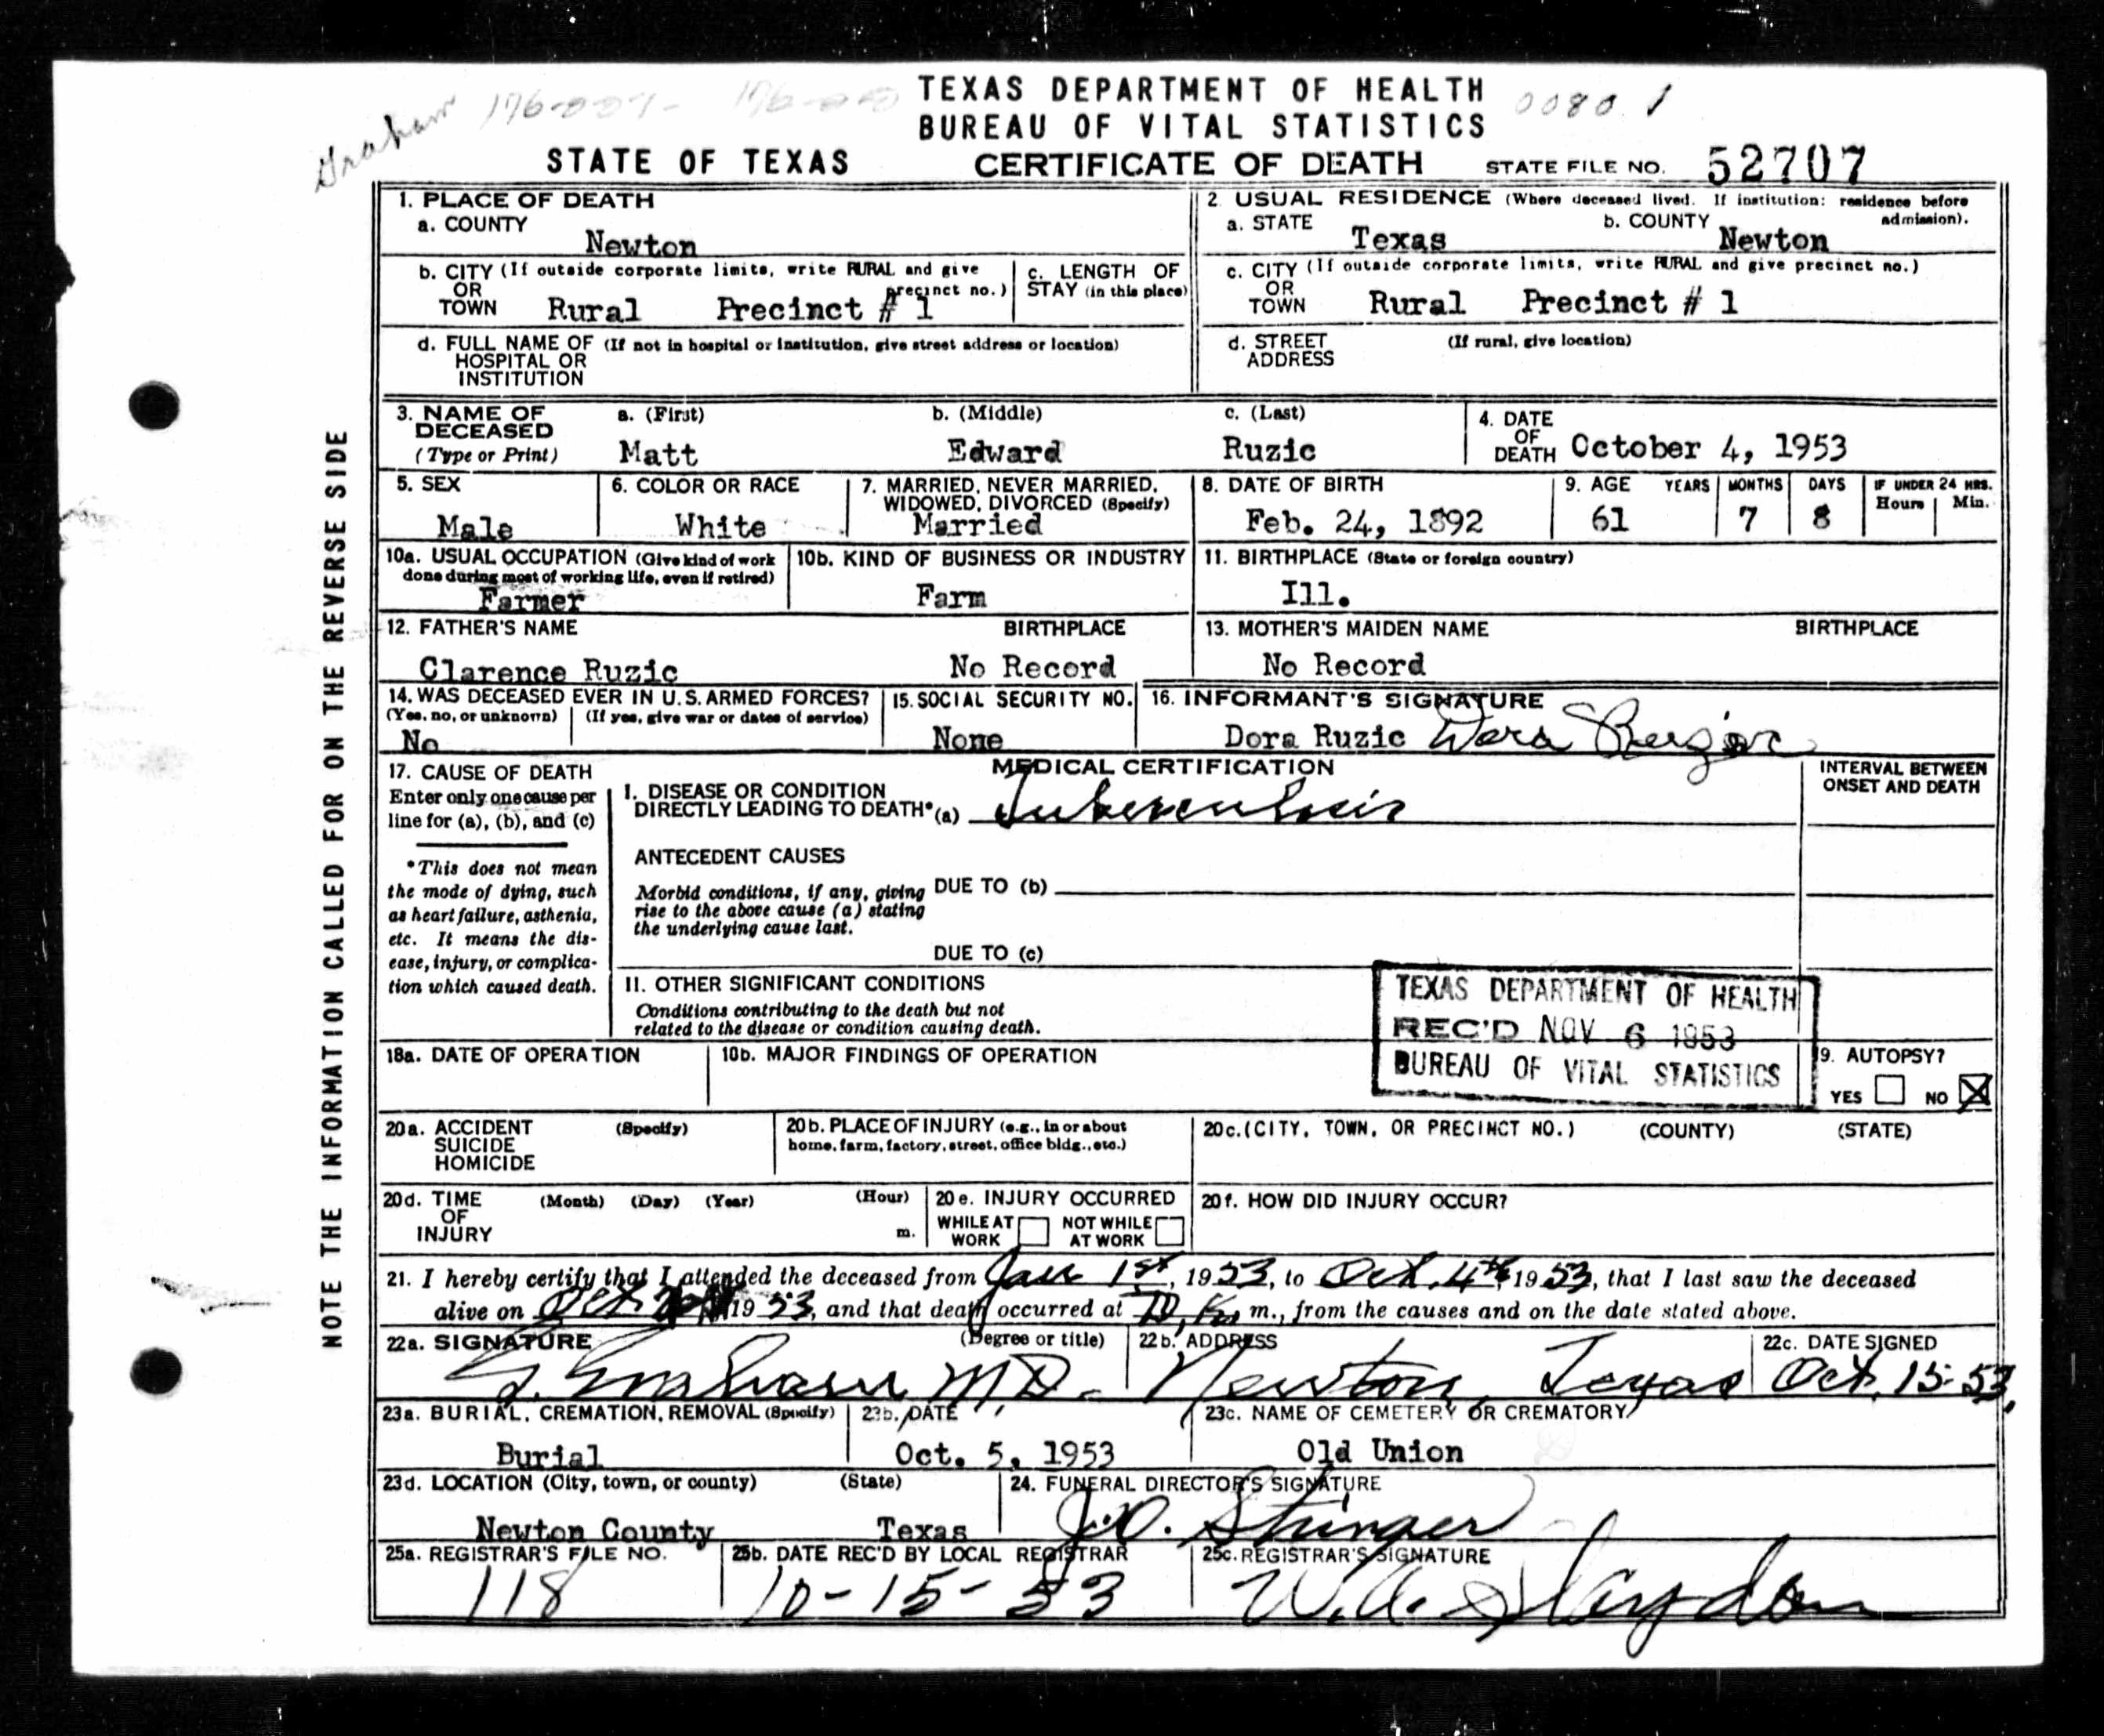 TEXAS DEPARTMENT OF HEALTH
Graham 176-007- 176-000 0080 1
BUREAU OF VITAL STATISTICS
STATE OF TEXAS CERTIFICATE OF DEATH STATE FILE NO. 52707
NOTE THE INFORMATION CALLED FOR ON THE REVERSE SIDE
1. PLACE OF DEATH
a. COUNTY
Newton
2. USUAL RESIDENCE (Where deceased lived. If institution: residence before admission).
a. STATE Texas b. COUNTY Newton
b. CITY (If outside corporate limits, write RURAL and give precinct no.)
OR
TOWN Rural Precinct # 1
c. LENGTH OF
STAY (in this place)
c. CITY (If outside corporate limits, write RURAL and give precinct no.)
OR
TOWN Rural Precinct # 1
d. FULL NAME OF (If not in hospital or institution, give street address or location)
HOSPITAL OR
INSTITUTION
d. STREET (If rural, give location)
ADDRESS
3. NAME OF a. (First) b. (Middle) c. (Last)
DECEASED
(Type or Print) Matt Edward Ruzic
4. DATE
OF
DEATH October 4, 1953
5. SEX
Male
6. COLOR OR RACE
White
7. MARRIED, NEVER MARRIED,
WIDOWED, DIVORCED (Specify)
Married
8. DATE OF BIRTH
Feb. 24, 1892
9. AGE YEARS MONTHS DAYS IF UNDER 24 HRS.
Hours Min.
61 7 8
10a. USUAL OCCUPATION (Give kind of work
done during most of working life, even if retired)
Farmer
10b. KIND OF BUSINESS OR INDUSTRY
Farm
11. BIRTHPLACE (State or foreign country)
Ill.
12. FATHER'S NAME BIRTHPLACE
Clarence Ruzic No Record
13. MOTHER'S MAIDEN NAME BIRTHPLACE
No Record
14. WAS DECEASED EVER IN U.S. ARMED FORCES?
(Yes, no, or unknown) (If yes, give war or dates of service)
No
15. SOCIAL SECURITY NO.
None
16. INFORMANT'S SIGNATURE
Dora Ruzic Dora Ruzic
MEDICAL CERTIFICATION
INTERVAL BETWEEN
ONSET AND DEATH
17. CAUSE OF DEATH
Enter only one cause per
line for (a), (b), and (c)
*This does not mean
the mode of dying, such
as heart failure, asthenia,
etc. It means the dis-
ease, injury, or complica-
tion which caused death.
I. DISEASE OR CONDITION
DIRECTLY LEADING TO DEATH* (a) Tuberculosis
ANTECEDENT CAUSES
Morbid conditions, if any, giving DUE TO (b)
rise to the above cause (a) stating
the underlying cause last.
DUE TO (c)
II. OTHER SIGNIFICANT CONDITIONS
Conditions contributing to the death but not
related to the disease or condition causing death.
TEXAS DEPARTMENT OF HEALTH
REC'D NOV 6 1953
BUREAU OF VITAL STATISTICS
18a. DATE OF OPERATION
10b. MAJOR FINDINGS OF OPERATION
9. AUTOPSY?
YES NO X
20a. ACCIDENT (Specify)
SUICIDE
HOMICIDE
20b. PLACE OF INJURY (e.g., in or about
home, farm, factory, street, office bldg., etc.)
20c. (CITY, TOWN, OR PRECINCT NO.) (COUNTY) (STATE)
20d. TIME (Month) (Day) (Year) (Hour)
OF
INJURY m.
20e. INJURY OCCURRED
WHILE AT NOT WHILE
WORK AT WORK
20f. HOW DID INJURY OCCUR?
21. I hereby certify that I attended the deceased from Jan 1st, 1953, to Oct. 4th, 1953, that I last saw the deceased
alive on Oct 1953, and that death occurred at m., from the causes and on the date stated above.
22a. SIGNATURE (Degree or title)
Graham M.D.
22b. ADDRESS
Newton, Texas
22c. DATE SIGNED
Oct. 15-53
23a. BURIAL, CREMATION, REMOVAL (Specify)
Burial
23b. DATE
Oct. 5, 1953
23c. NAME OF CEMETERY OR CREMATORY
Old Union
23d. LOCATION (City, town, or county) (State)
Newton County Texas
24. FUNERAL DIRECTOR'S SIGNATURE
J.O. Stringer
25a. REGISTRAR'S FILE NO.
118
25b. DATE REC'D BY LOCAL REGISTRAR
10-15-53
25c. REGISTRAR'S SIGNATURE
W.A. Slaydon